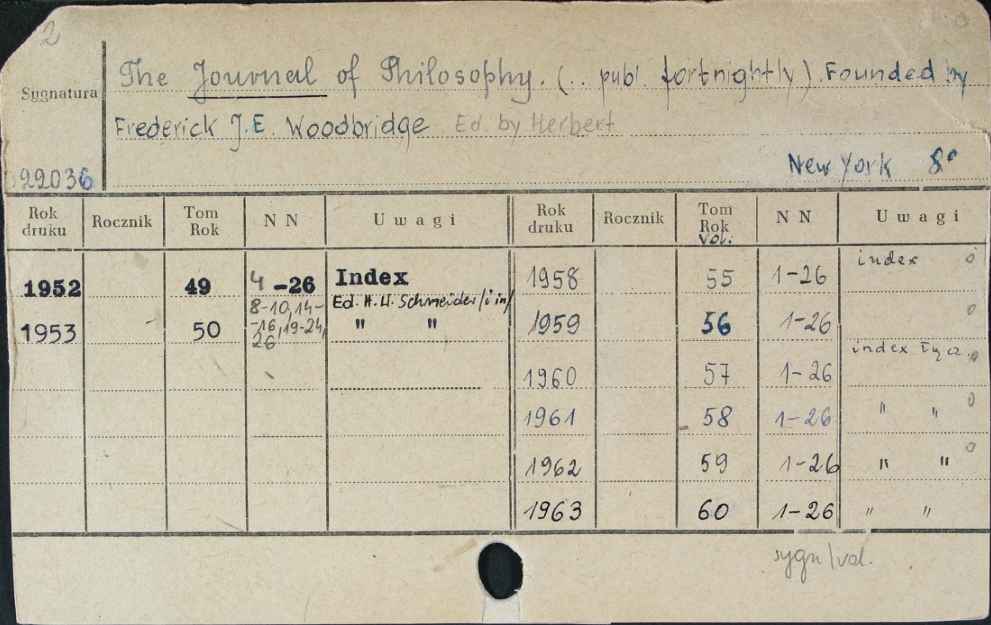 2
Sygnatura
The Journal of Philosophy. (.. publ. fortnightly). Founded by
Frederick J.E. Woodbridge Ed. by Herbert
New York 8°
22036
Rok druku Rocznik Tom Rok NN Uwagi Rok druku Rocznik Tom Rok Vol. NN Uwagi
1952 49 4-26 Index 1958 55 1-26 index 0
Ed. H.W. Schneider /i in/
1953 50 8-10,14-
-16,19-24,
26 " " 1959 56 1-26 0
1960 57 1-26 index 0
1961 58 1-26 " " 0
1962 59 1-26 " " 0
1963 60 1-26 " "
sygn/vol.